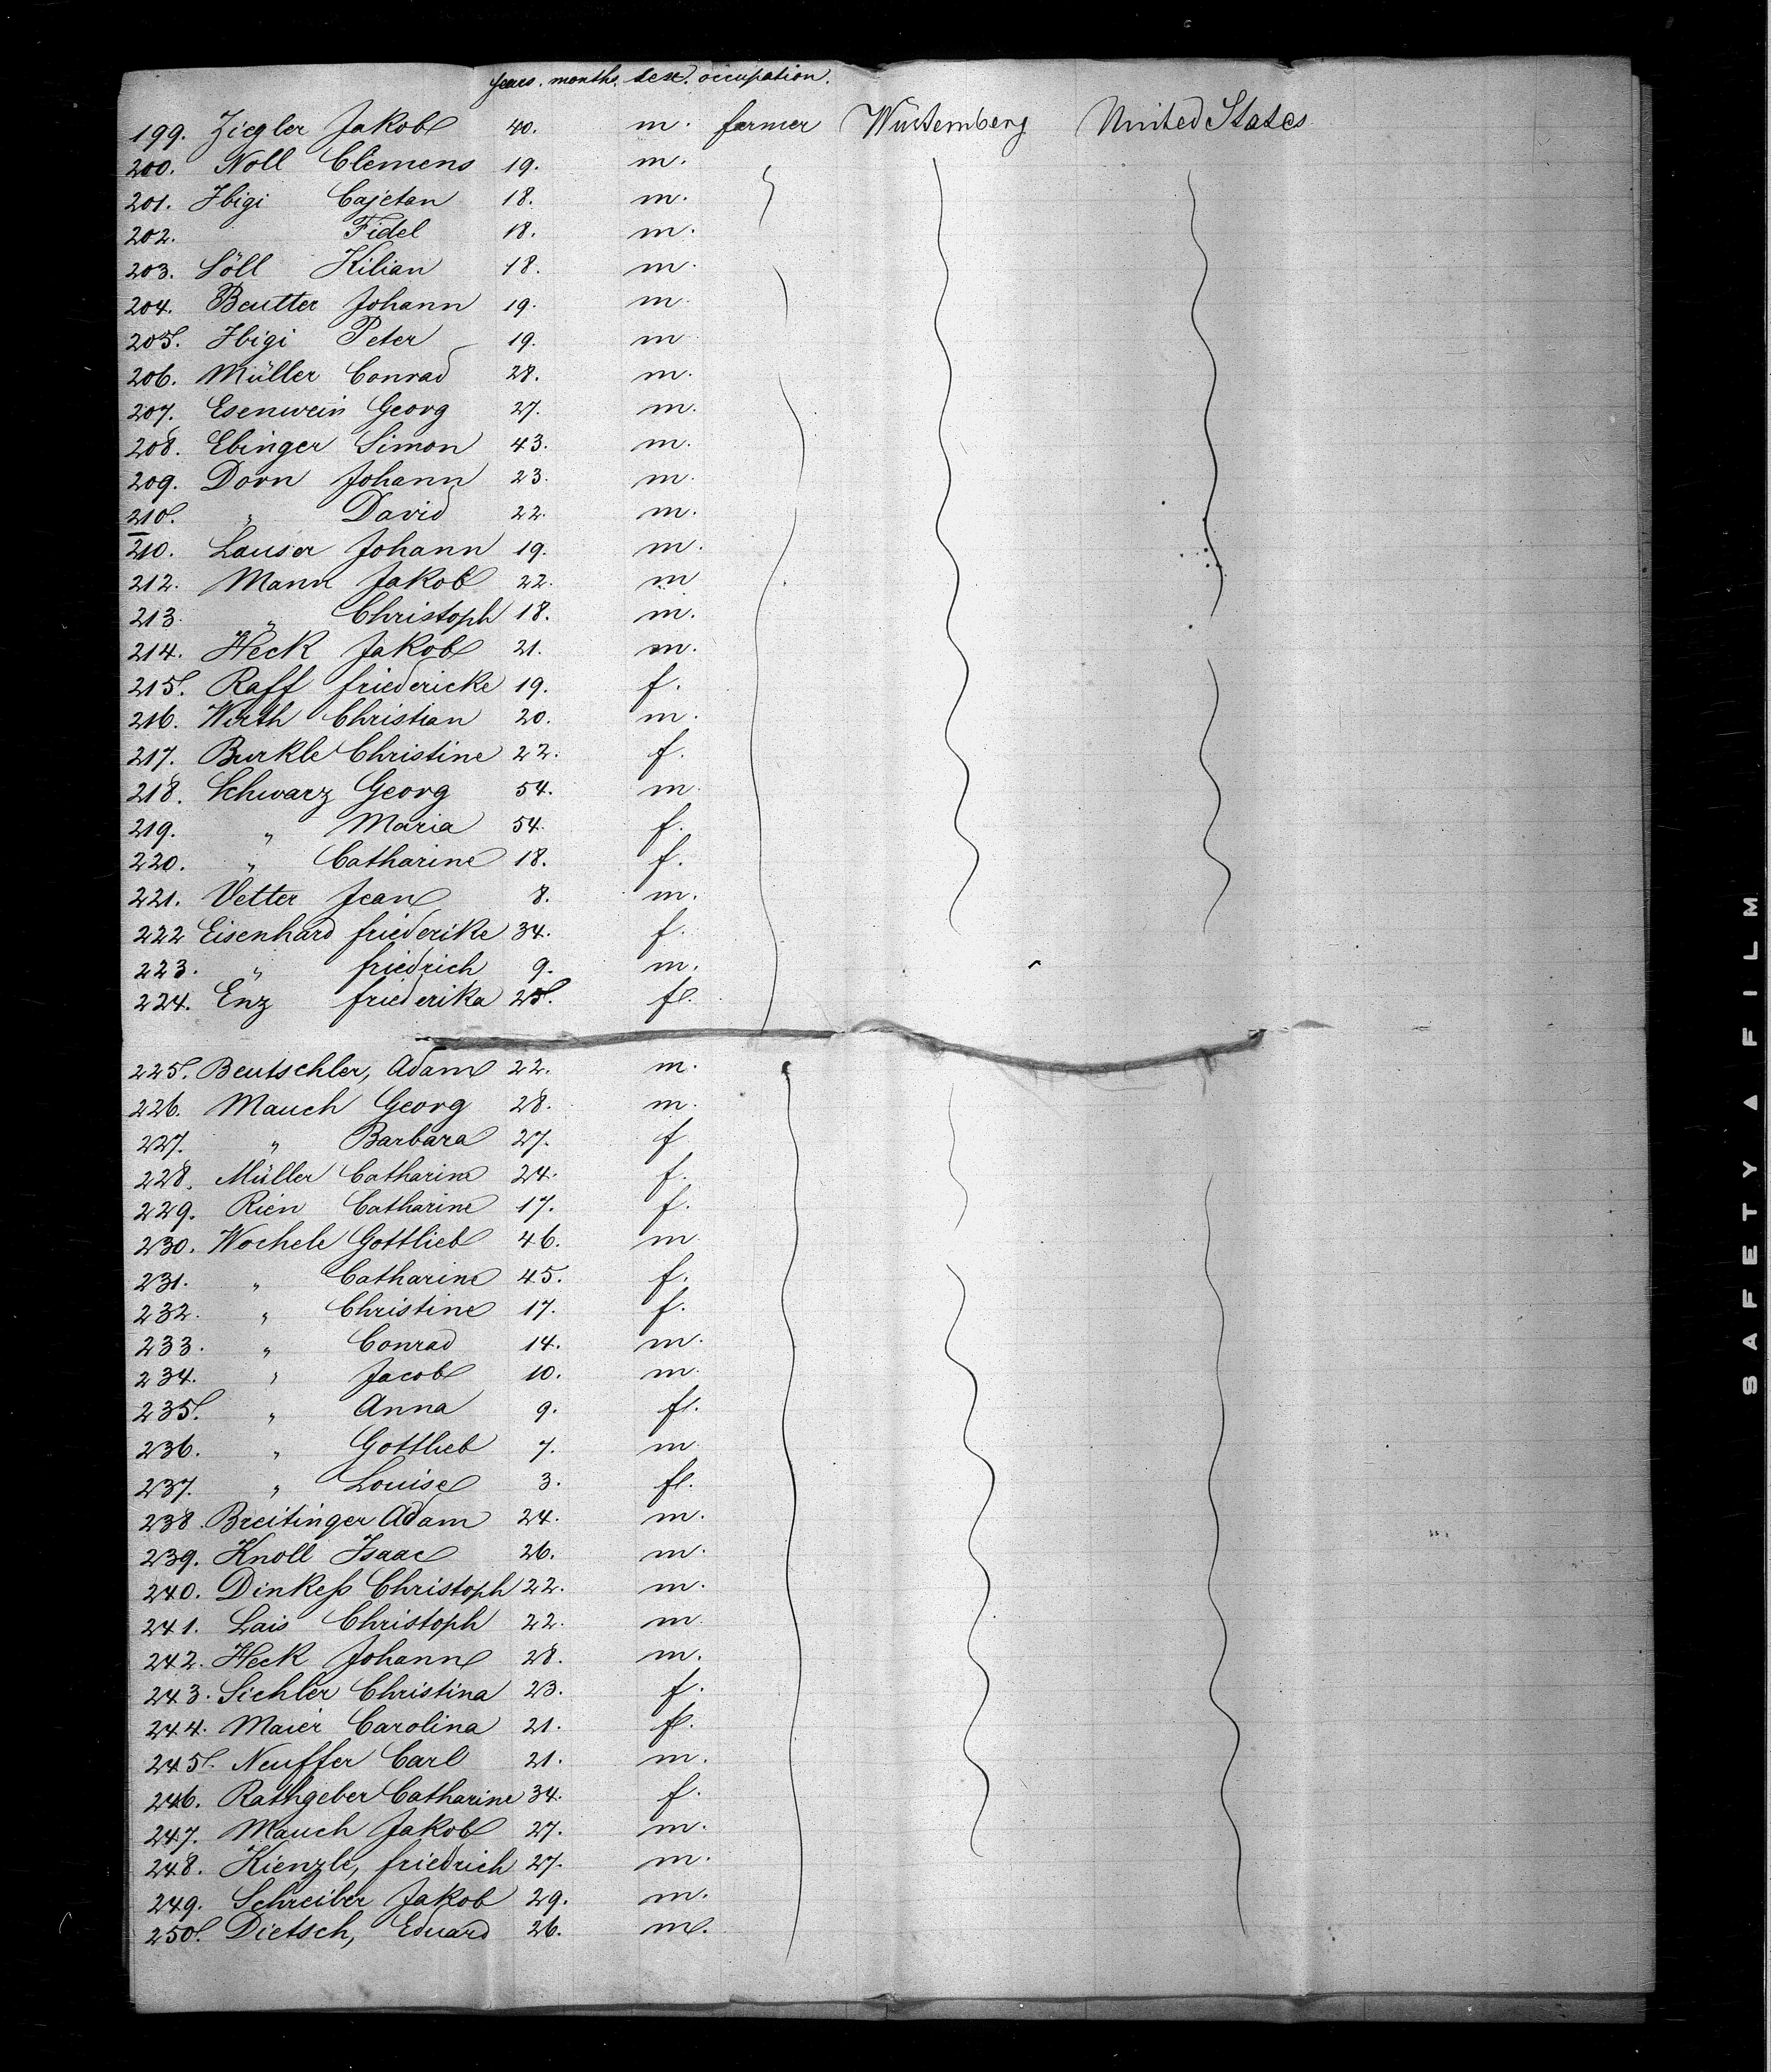 years. months. sex. occupation.
199. Ziegler Jakob 40. m. farmer Würtemberg United States
200. Noll Clemens 19. m.
201. Ibigi Cajetan 18. m.
202. Fidel 18. m.
203. Söll Kilian 18. m.
204. Beutter Johann 19. m.
205. Ibigi Peter 19. m
206. Müller Conrad 28. m.
207. Esenwein Georg 27. m.
208. Ebinger Simon 43. m.
209. Dorn Johann 23. m.
210. " David 22. m.
210. Lauser Johann 19. m.
212. Mann Jakob 22. m
213. " Christoph 18. m.
214. Heck Jakob 21. m.
215. Raff friedericke 19. f.
216. Wirth Christian 20. m.
217. Burkle Christine 22. f.
218. Schwarz Georg 54. m.
219. " Maria 54. f.
220. " Catharine 18. f.
221. Vetter Jean 8. m.
222 Eisenhard friederike 34. f.
223. " friedrich 9. m.
224. Enz friederika 25. f.
225. Beutschler, Adam 22. m.
226. Mauch Georg 28. m.
227. " Barbara 27. f
228. Müller Catharine 24. f.
229. Rien Catharine 17. f.
230. Wochele Gottlieb 46. m
231. " Catharine 45. f.
232. " Christine 17. f.
233. " Conrad 14. m.
234. " Jacob 10. m.
235. " Anna 9. f.
236. " Gottlieb 7. m
237. " Louise 3. f.
238. Breitinger Adam 24. m.
239. Knoll Isaac 26. m.
240. Dinkeß Christoph 22. m.
241. Lais Christoph 22. m.
242. Heck Johann 28. m.
243. Sichler Christina 23. f.
244. Maier Carolina 21. f.
245. Neuffer Carl 21. m.
246. Rathgeber Catharine 34. f.
247. Mauch Jakob 27. m.
248. Kienzle, friedrich 27. m.
249. Schreiber Jakob 29. m.
250. Dietsch, Eduard 26. m.
SAFETY ▲ FILM